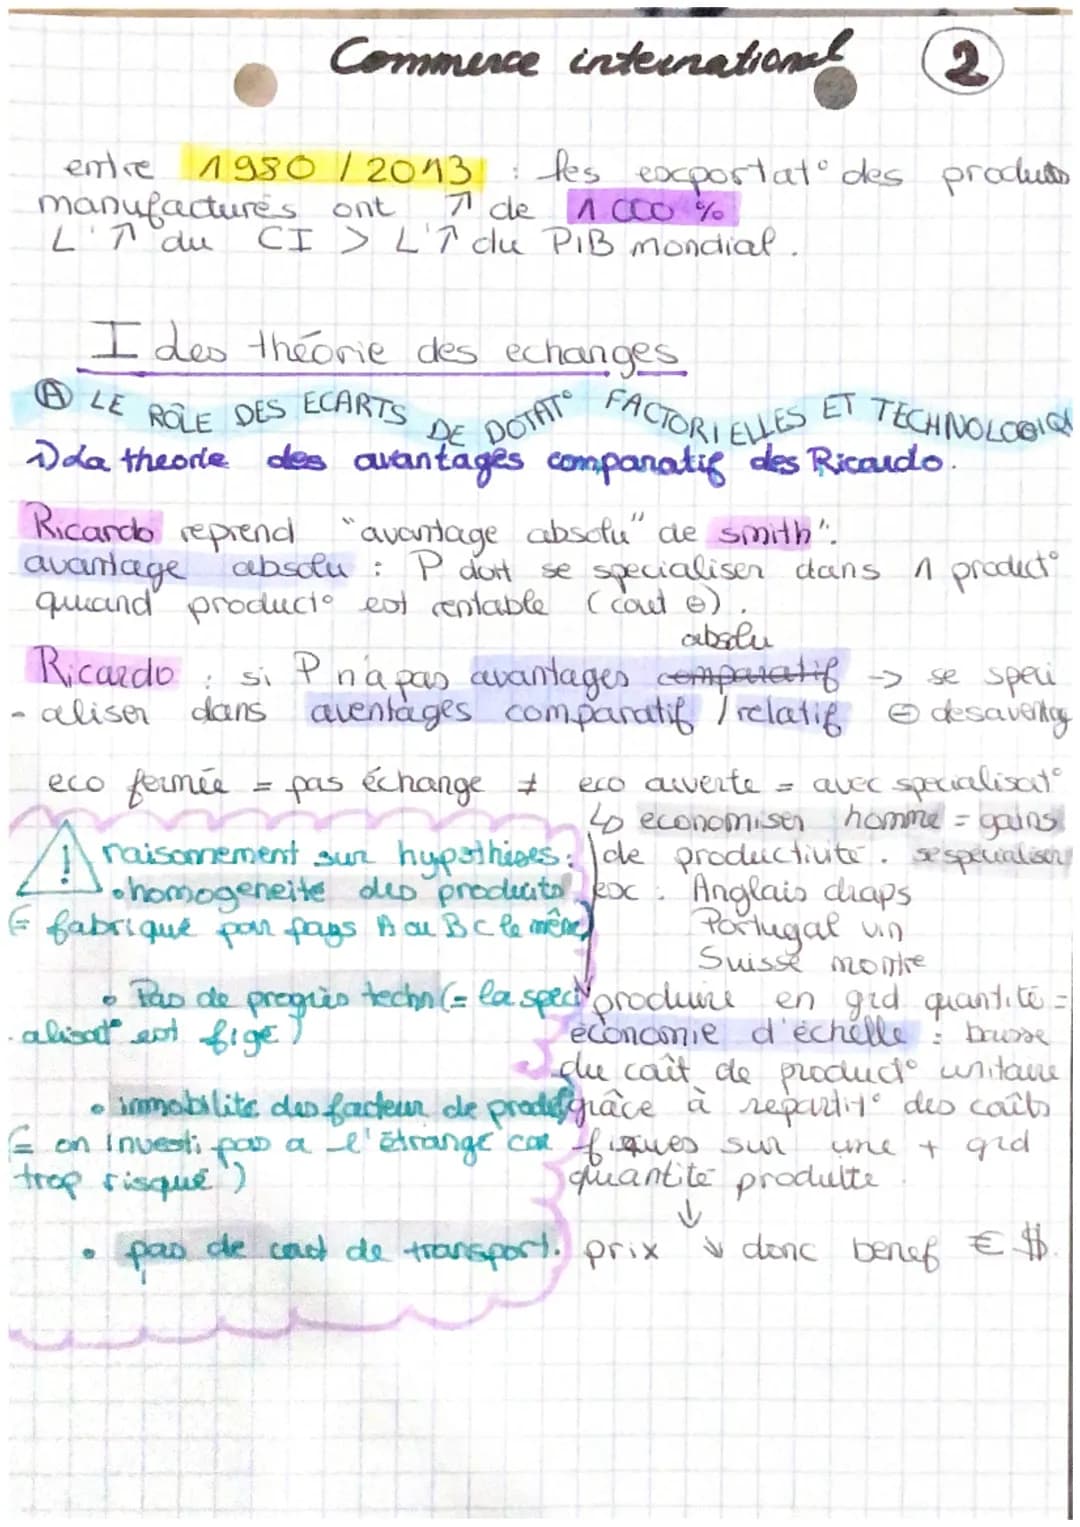 Commerce international 2
entre 1980 / 2013 : les exportat° des produits
manufacturés ont ↗ de 1 000 %
L'↗ du CI > L'↗ du PIB mondial.
I des théorie des echanges
A LE RÔLE DES ECARTS DE DOTAT° FACTORIELLES ET TECHNOLOGIQ
1) La theorie des avantages comparatif des Ricardo.
Ricardo reprend "avantage absolu" de smith":
avantage absolu : P doit se specialiser dans 1 product°
quand product° est rentable (cout ⊖).
absolu
Ricardo : si P n'a pas avantages comparatif -> se speci
- aliser dans aventages comparatif / relatif ⊖ desaventag
eco fermée = pas échange ≠ eco ouverte = avec specialisat°
↳ economiser homme = gains
de productivité. se specialiser
ex : Anglais draps
Portugal vin
Suisse montre
produire en grd quantité =
économie d'échelle : baisse
du coût de product° unitaire
grâce à repartit° des coûts
fixques sur une + grd
quantité produite
↓
prix ↘ donc benef € $.
! raisonnement sur hypothises :
• homogeneite des produits
(= fabriqué par pays A ou B c le même)
• Pas de progrès techn (= la speci
alisat° est figé)
• immobilite des facteur de prod
(= on investi pas a l'étrangé car
trop risqué)
• pas de cout de transport.